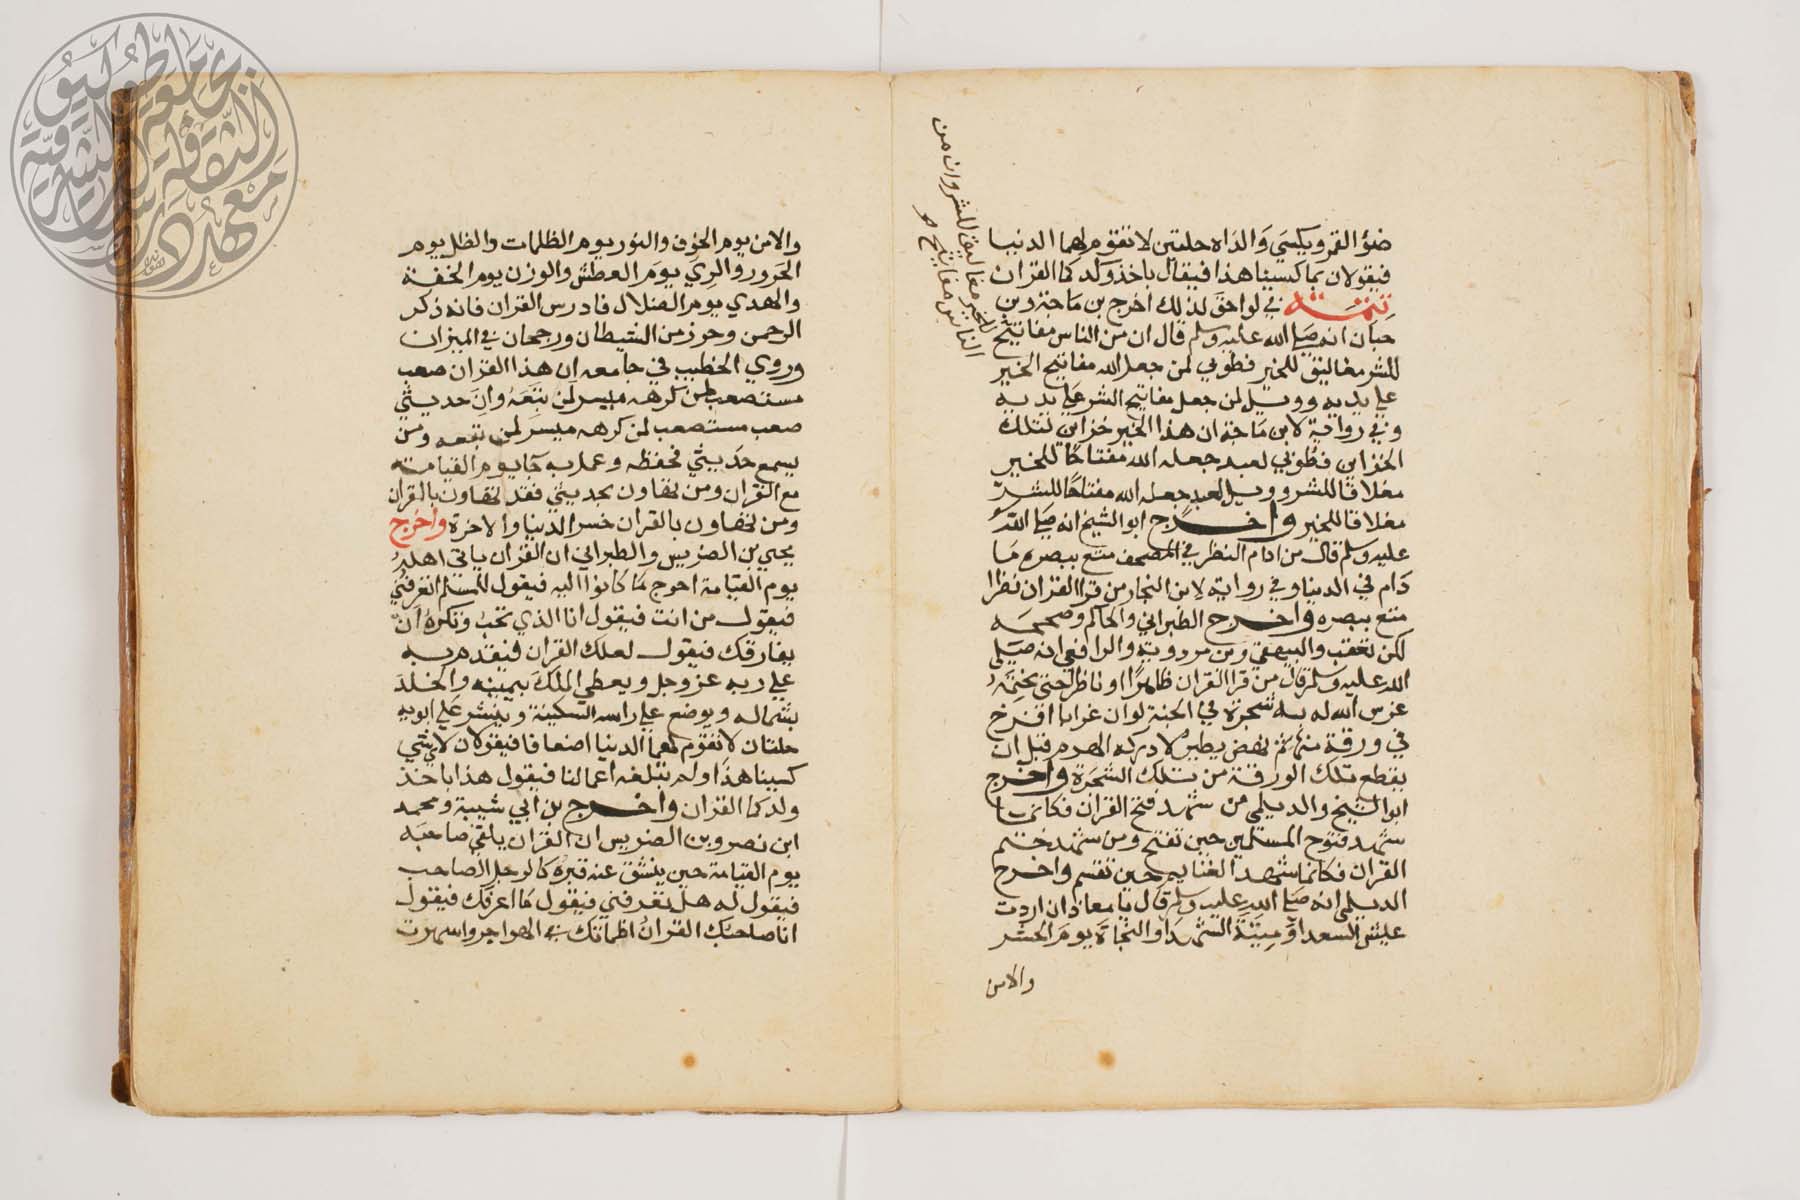 ضؤ القمر ويكسي والداه حلتين لا تقوم لهما الدنيا
فيقولان بما كسينا هذا فيقال باخذ ولدكما القران
تتمة في لواحق لذلك اخرج بن ماجة وبن
حبان انه صلى الله عليه وسلم قال ان من الناس مفاتيح
للشر مغاليق للخير فطوبي لمن جعل الله مفاتيح الخير
على يديه وويل لمن جعل مفاتيح الشر على يديه
وفي رواية لابن ماجة ان هذا الخير خزاين لتلك
الخزاين فطوبي لعبد جعله الله مفتاحا للخير
مغلاقا للشر وويل لعبد جعله الله مفتاحا للشر
مغلاقا للخير واخرج ابو الشيخ انه صلى الله
عليه وسلم قال من ادام النظر في المصحف متع ببصره ما
دام في الدنيا وفي رواية لابن النجار من قرا القران نظرا
متع ببصره واخرج الطبراني والحاكم وصححه
لكن تعقب والبيهقي وبن مردوية والرافعي انه صلى
الله عليه وسلم قال من قرا القران ظاهرا او ناظرا حتى يختمه
غرس الله له به شجرة في الجنة لو ان غرابا افرخ
في ورقة منها ثم نهض يطير لادركه الهرم قبل ان
يقطع تلك الورقة من تلك الشجرة واخرج
ابو الشيخ والديلمي من شهد فتح القران فكانما
شهد فتوح المسلمين حين تفتح ومن شهد ختم
القران فكانما شهد الغنايم حين تقسم واخرج
الديلمي انه صلى الله عليه وسلم قال يا معاذ ان اردت
عيش السعدا وميتة الشهدا والنجاة يوم الحشر
والامن
للخير مغاليق للشر وان من
الناس مفاتيح
والامن يوم الخوف والنور يوم الظلمات والظل يوم
الحرور والري يوم العطش والوزن يوم الخفة
والهدي يوم الضلال فادرس القران فانه ذكر
الرحمن وحرز من الشيطان ورجحان في الميزان
وروي الخطيب في جامعه ان هذا القران صعب
مستصعب لمن كرهه ميسر لمن تبعه وان حديثي
صعب مستصعب لمن كرهه ميسر لمن تبعه ومن
يسمع حديثي فحفظه وعمل به جا يوم القيامة
مع القران ومن تهاون بحديثي فقد تهاون بالقران
ومن تهاون بالقران خسر الدنيا والاخرة واخرج
يحيي بن الضريس والطبراني ان القران ياتى اهله
يوم القيامة احوج ما كانوا اليه فيقول للمسلم اتعرفني
فيقول من انت فيقول انا الذي تحب وتكره ان
يفارقك فيقول لعلك القران فيقدم به
على ربه عز وجل ويعطي الملك بيمينه والخلد
بشماله ويوضع على راسه السكينة وينشر على ابويه
حلتان لا تقوم لهما الدنيا اضعافا فيقولان لاي شي
كسينا هذا ولم تبلغه اعمالنا فيقول هذا باخذ
ولدكما القران واخرج بن ابي شيبة ومحمد
ابن نصر وبن الضريس ان القران يلقي صاحبه
يوم القيامة حين ينشق عنه قبره كالرجل الصاحب
فيقول له هل تعرفني فيقول ما اعرفك فيقول
انا صاحبك القران اظماتك في الهواجر واسهرت